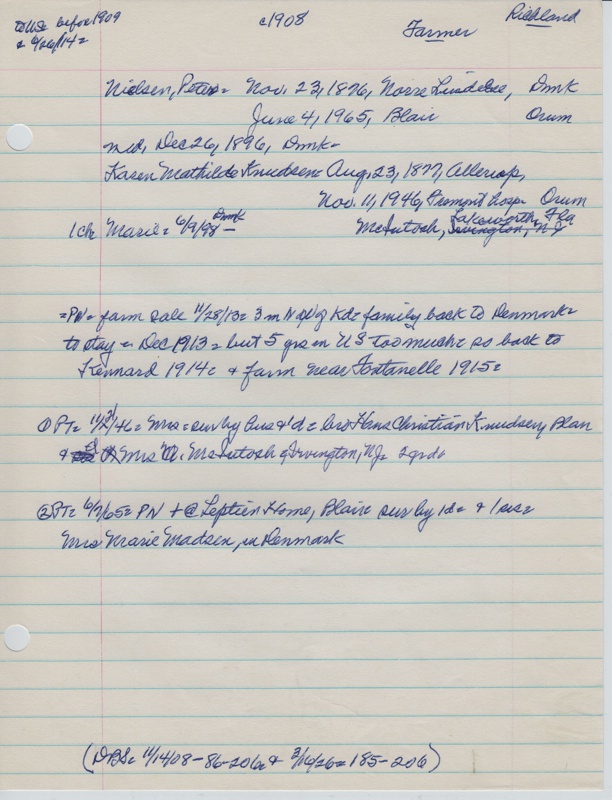 to US before 1909
& 4/26/14=
c1908
Farmer
Richland
Nielsen, Peter= Nov. 23, 1876, Norre Lindelse, Dmk
June 4, 1965, Blair Orum
md, Dec 26, 1896, Dmk=
Karen Mathilde Knudsen= Aug. 23, 1877,
Nov. 11, 1946, Fremont hosp= Orum
1 ch Marie= 6/9/98 Dmk
McIntosh, Lakeworth, Fla
Irvington, NJ
=PN= farm sale 11/28/13= 3 m N of Kd= family back to Denmark=
to stay = Dec 1913 = but 5 yrs in US too much= so back to
Kennard 1914= & farm near Fontanelle 1915=
① PT= 11/21/46= Mrs= sur by hus & 1d= bro Hans Christian Knudsen, Blair
& Mrs McIntosh of Irvington, NJ=
② PT= 6/7/65= PN + @ Leptien Home, Blair= sur by 1d= & 1 sis=
Mrs Marie Madsen, in Denmark
(DBS= 11/14/08-86-206= & 3/16/26= 185-206)